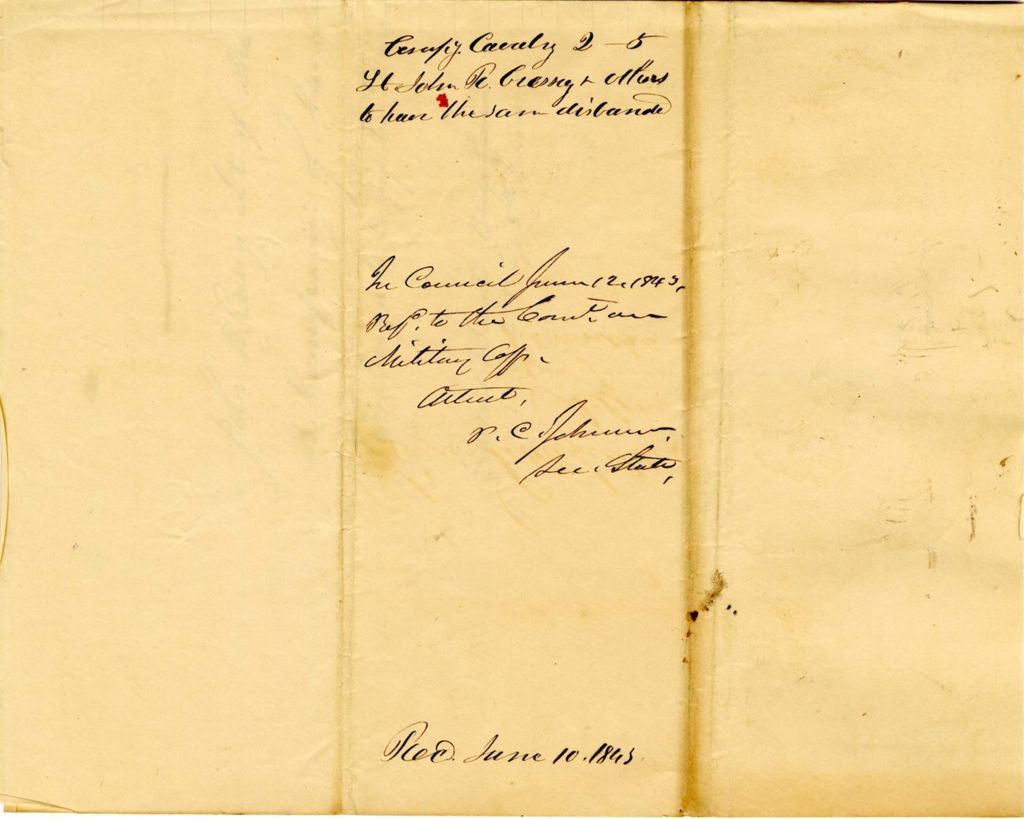 Compy. Cavalry 2 - 5
Lt John R. Crossey & others
to have the same disbanded
In Council June 12, 1843,
Ref. to the Comt. on
Military Aff.
Attest,
P. C. Johnson,
Sec. State,
Recd. June 10. 1843